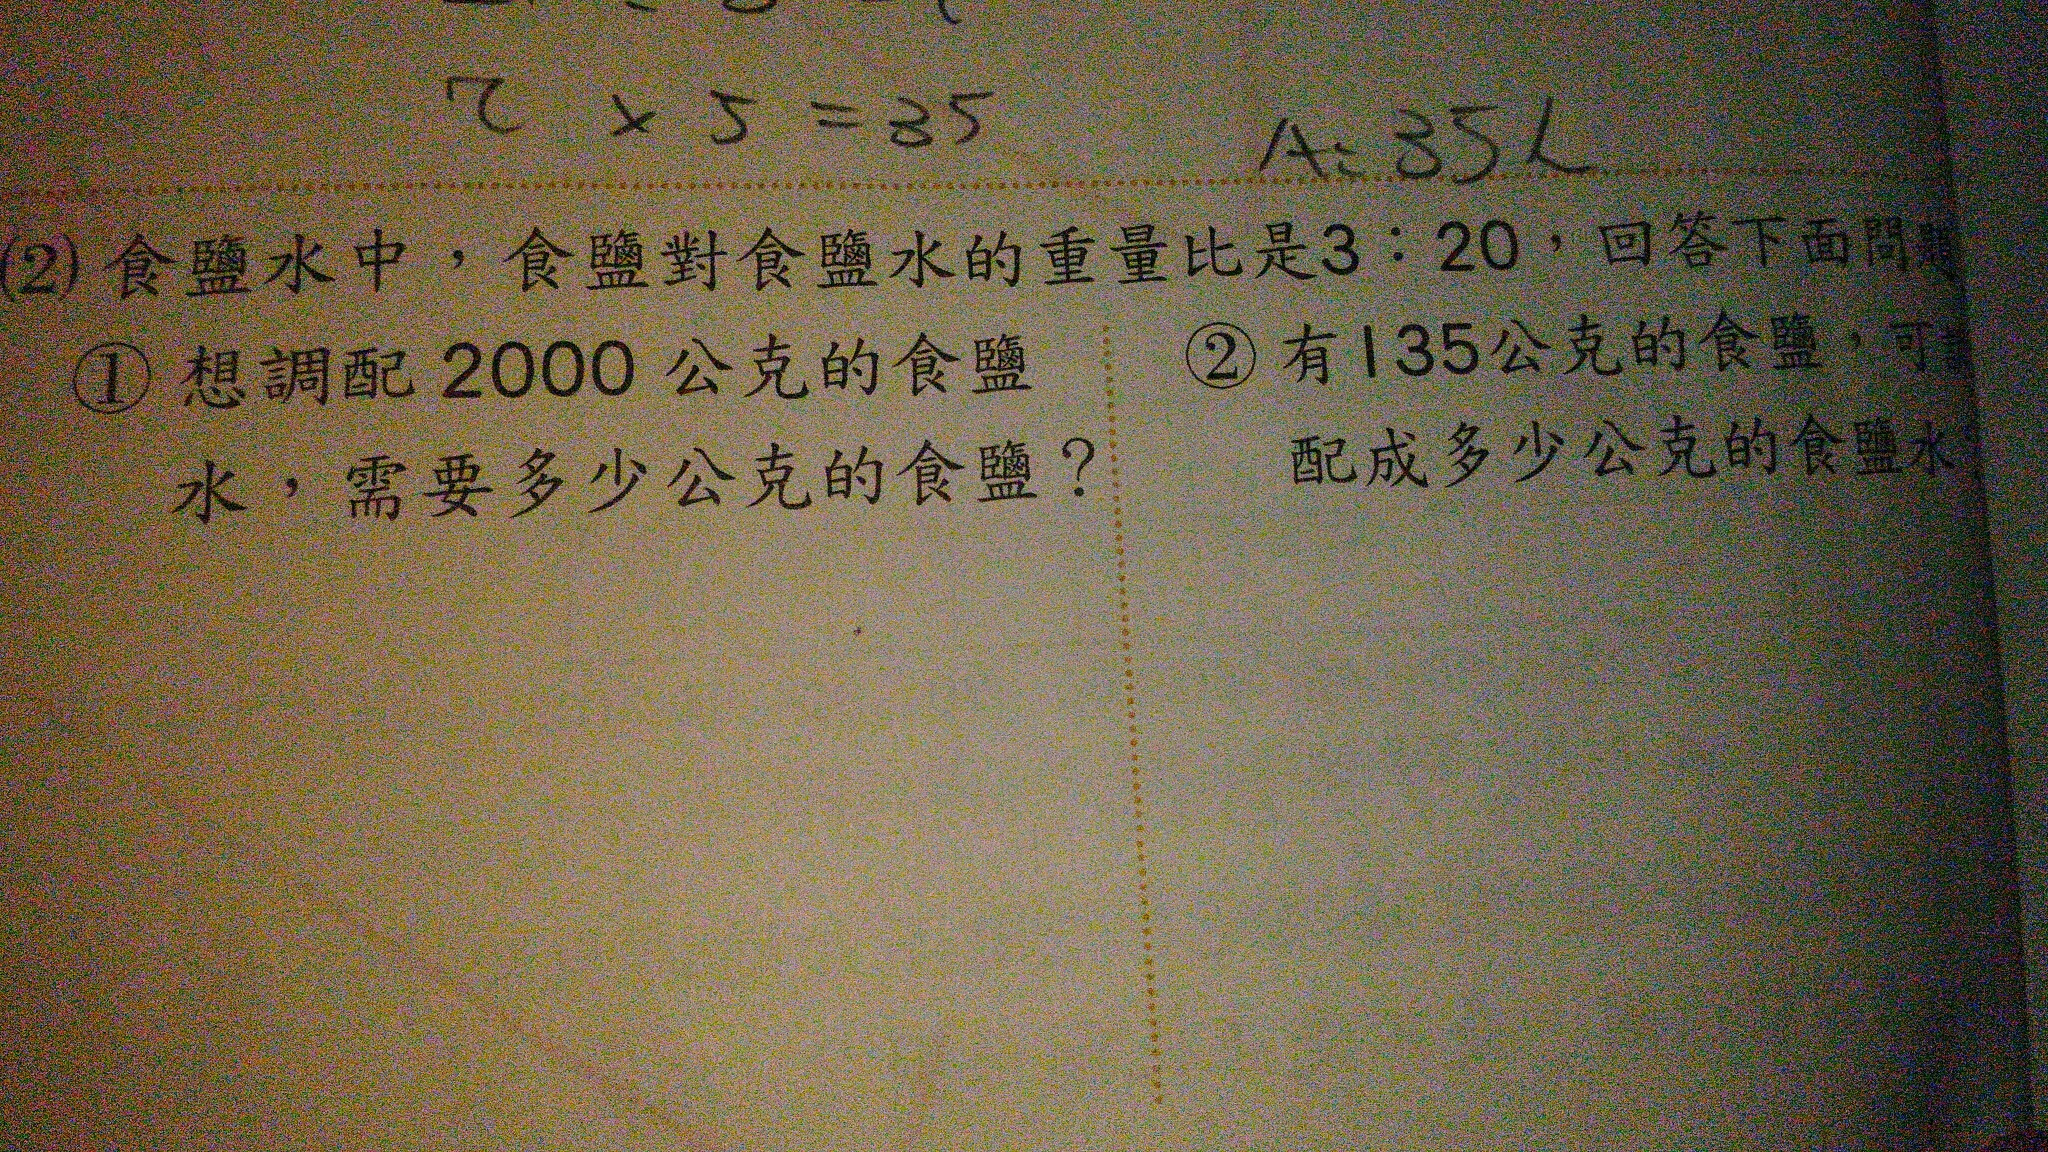 7 × 5 = 35
A: 35L
(2) 食鹽水中，食鹽對食鹽水的重量比是3：20，回答下面問題
① 想調配 2000 公克的食鹽
水，需要多少公克的食鹽？
② 有135公克的食鹽，可
配成多少公克的食鹽水